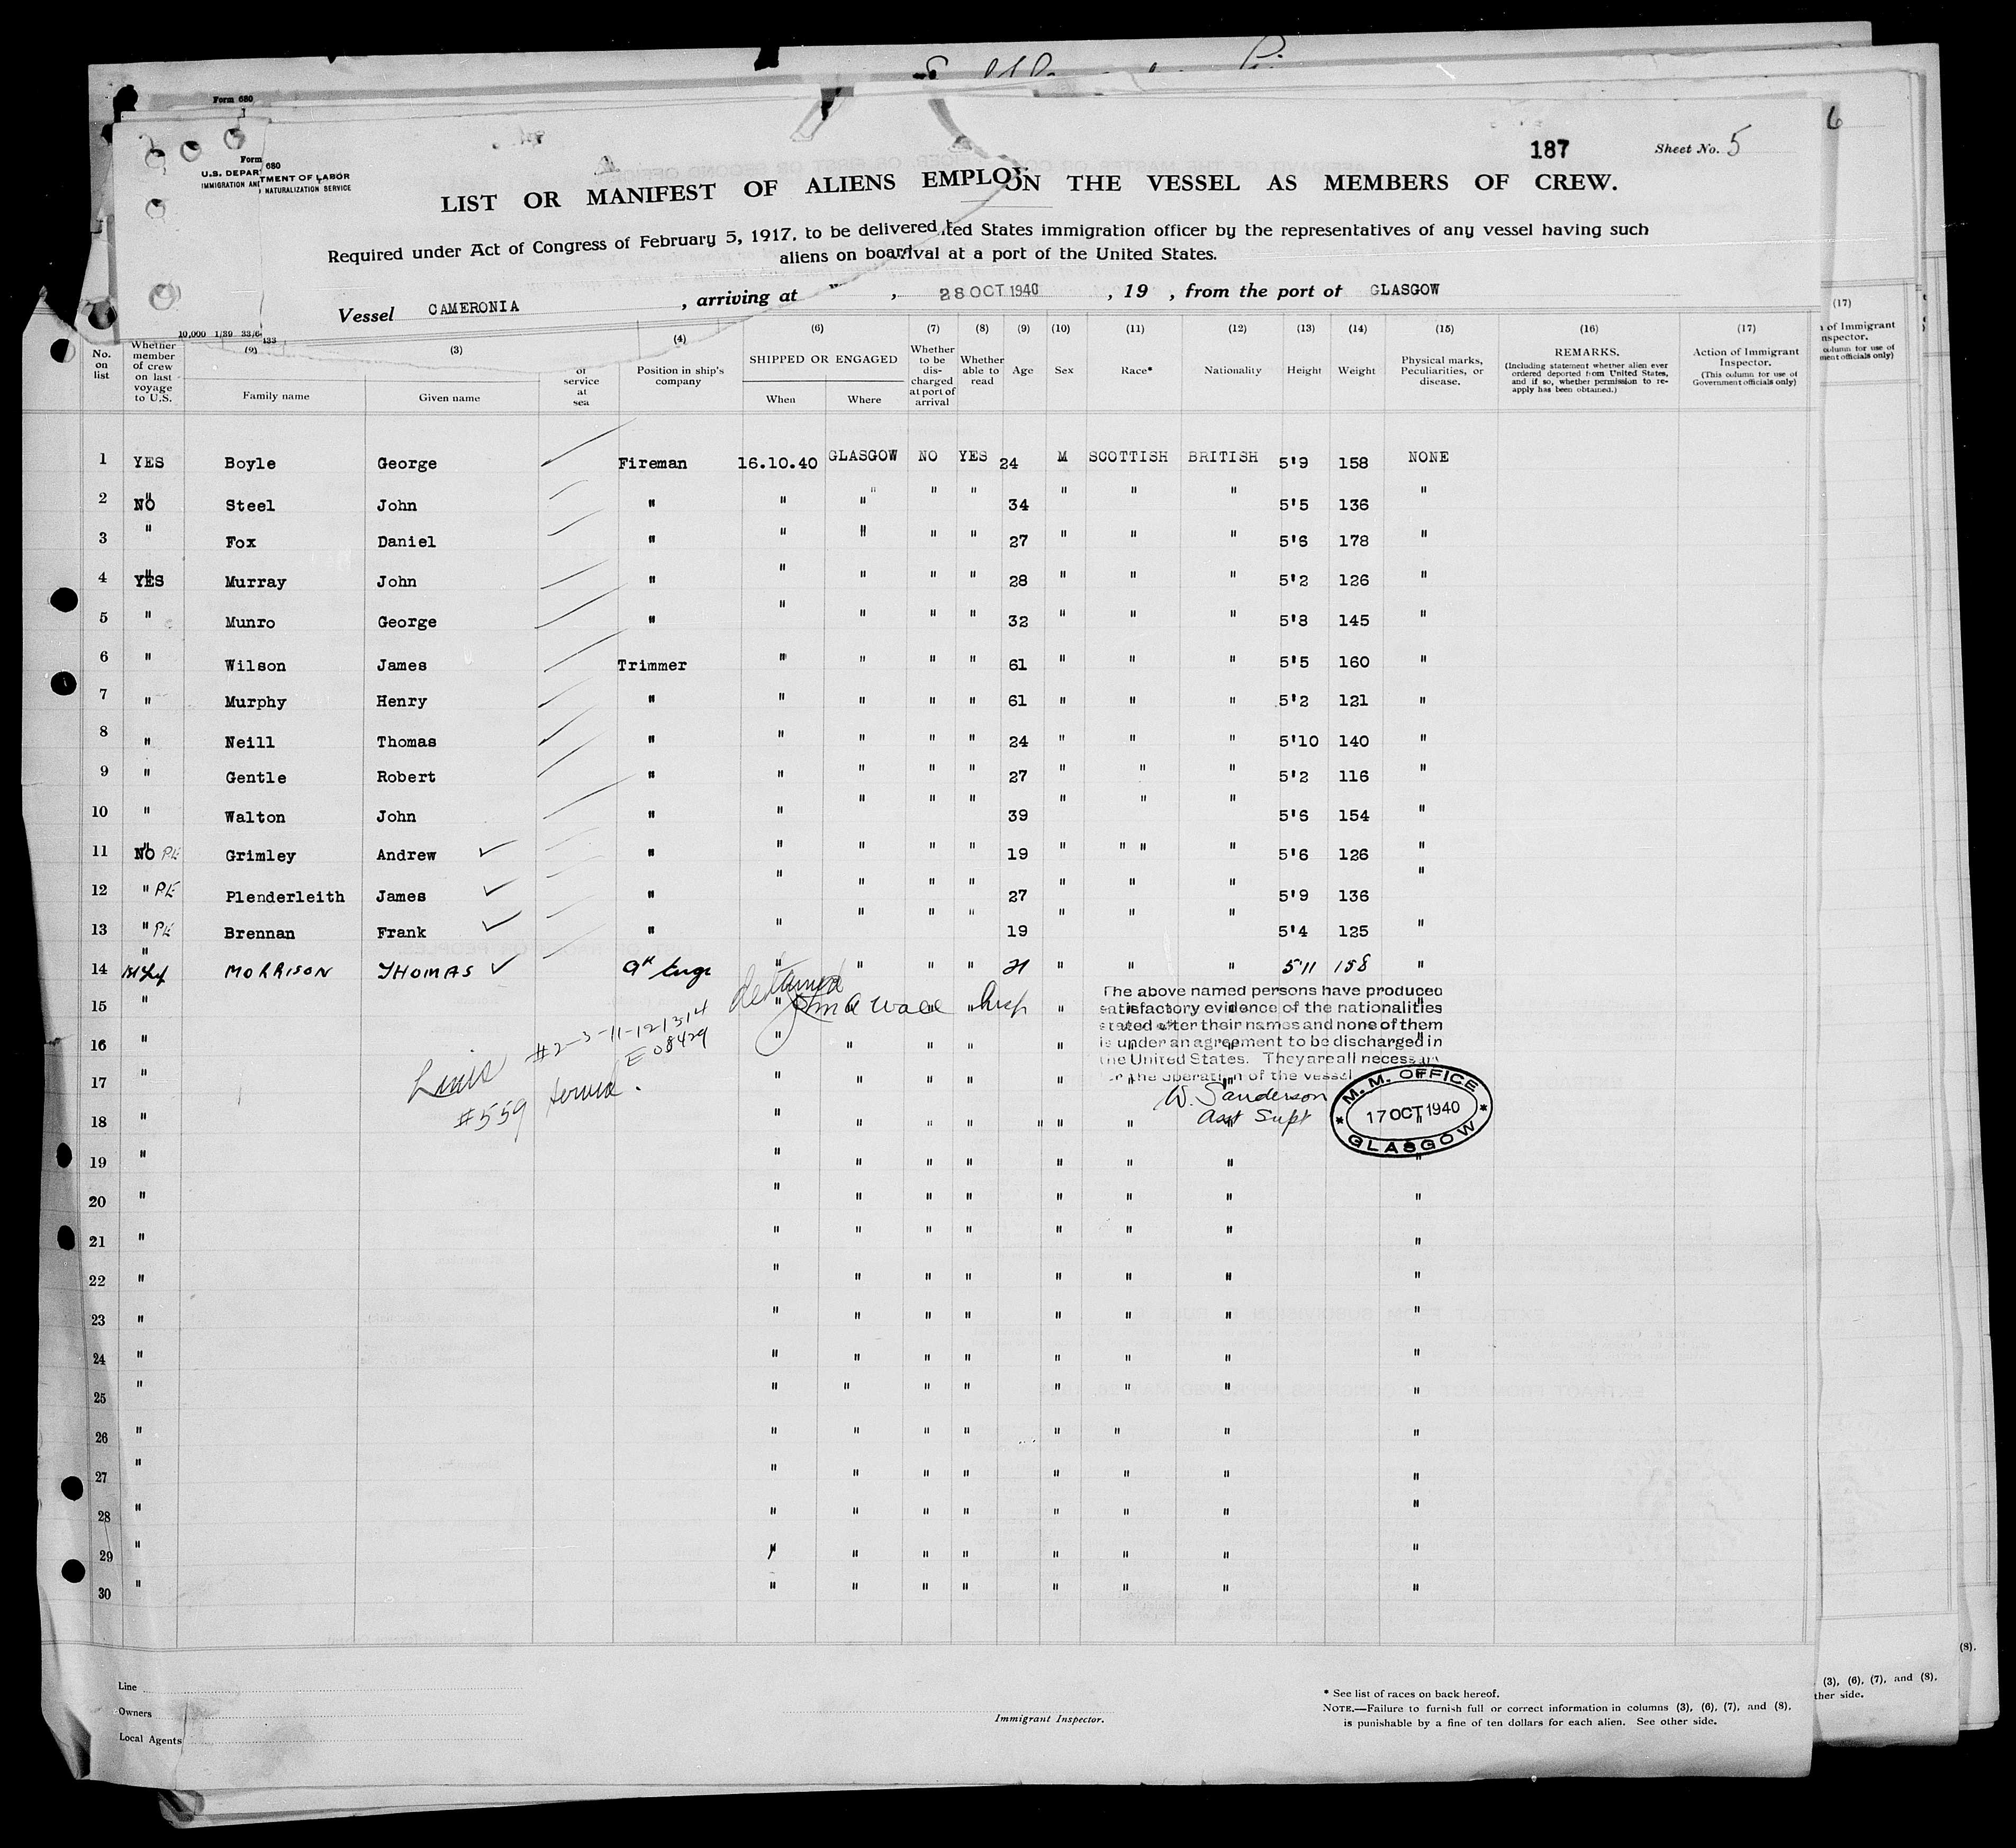 Form 680
6
187 Sheet No. 5
Form 680
U.S. DEPARTMENT OF LABOR
IMMIGRATION AND NATURALIZATION SERVICE
LIST OR MANIFEST OF ALIENS EMPLOY ON THE VESSEL AS MEMBERS OF CREW.
Required under Act of Congress of February 5, 1917, to be delivered ted States immigration officer by the representatives of any vessel having such
aliens on boa rival at a port of the United States.
Vessel CAMERONIA , arriving at , 28 OCT 1940 , 19 , from the port of GLASGOW
10,000 1/39 33/6-133
No. on list | Whether member of crew on last voyage to U.S. | (2) Family name | (3) Given name | of service at sea | (4) Position in ship's company | (6) SHIPPED OR ENGAGED When Where | (7) Whether to be discharged at port of arrival | (8) Whether able to read | (9) Age | (10) Sex | (11) Race* | (12) Nationality | (13) Height | (14) Weight | (15) Physical marks, Peculiarities, or disease. | (16) REMARKS. (Including statement whether alien ever ordered deported from United States, and if so, whether permission to re-apply has been obtained.) | (17) Action of Immigrant Inspector. (This column for use of Government officials only)
1 YES Boyle George Fireman 16.10.40 GLASGOW NO YES 24 M SCOTTISH BRITISH 5'9 158 NONE
2 NO Steel John " " " " " 34 " " " 5'5 136 "
3 " Fox Daniel " " " " " 27 " " " 5'6 178 "
4 YES Murray John " " " " " 28 " " " 5'2 126 "
5 " Munro George " " " " " 32 " " " 5'8 145 "
6 " Wilson James Trimmer " " " " 61 " " " 5'5 160 "
7 " Murphy Henry " " " " " 61 " " " 5'2 121 "
8 " Neill Thomas " " " " " 24 " " " 5'10 140 "
9 " Gentle Robert " " " " " 27 " " " 5'2 116 "
10 " Walton John " " " " " 39 " " " 5'6 154 "
11 NO PE Grimley Andrew ✓ " " " " " 19 " " " " 5'6 126 "
12 " PE Plenderleith James ✓ " " " " " 27 " " " 5'9 136 "
13 " PE Brennan Frank ✓ " " " " " 19 " " " 5'4 125 "
14 " MORRISON THOMAS ✓ 9th Engr " " " " 21 " " " 5'11 158 "
detained
15 " " " " "
John A Wall Insp
The above named persons have produced
satisfactory evidence of the nationalities
stated after their names and none of them
is under an agreement to be discharged in
the United States. They are all necessary
for the operation of the vessel
W. Sanderson
Asst Supt
M. M. OFFICE
17 OCT 1940
GLASGOW
#2-3-11-12 13 14
E 08429
#559 served.
16 " " " " " " " " "
17 " " " " " " " " "
18 " " " " " " " " "
19 " " " " " " " " "
20 " " " " " " " " "
21 " " " " " " " " "
22 " " " " " " " " "
23 " " " " " " " " "
24 " " " " " " " " "
25 " " " " " " " " "
26 " " " " " " " " "
27 " " " " " " " " "
28 " " " " " " " " "
29 " " " " " " " " "
30 " " " " " " " " "
Line
Owners
Local Agents
Immigrant Inspector.
* See list of races on back hereof.
NOTE.—Failure to furnish full or correct information in columns (3), (6), (7), and (8),
is punishable by a fine of ten dollars for each alien. See other side.
(17)
n of Immigrant
nspector.
column for use of
ment officials only)
(8).
(3), (6), (7), and (8),
ther side.